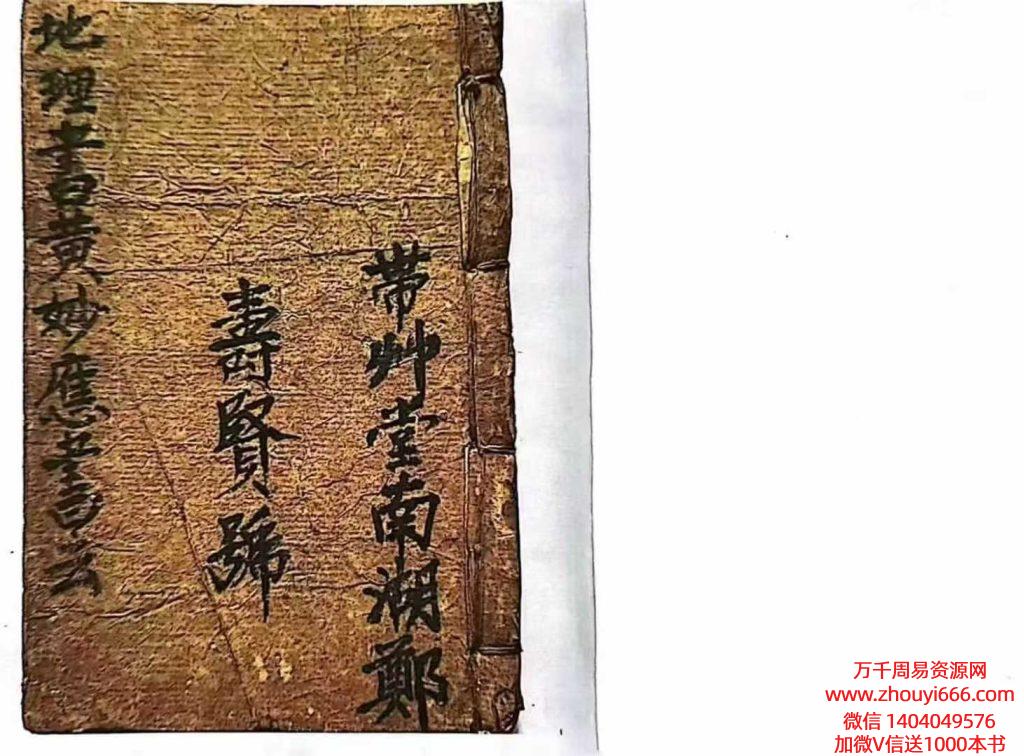 帶艸堂南湖鄭
壽賢號
地理書黃妙應書云
万千周易资源网
www.zhouyi666.com
微信 1404049576
加微V信送1000本书